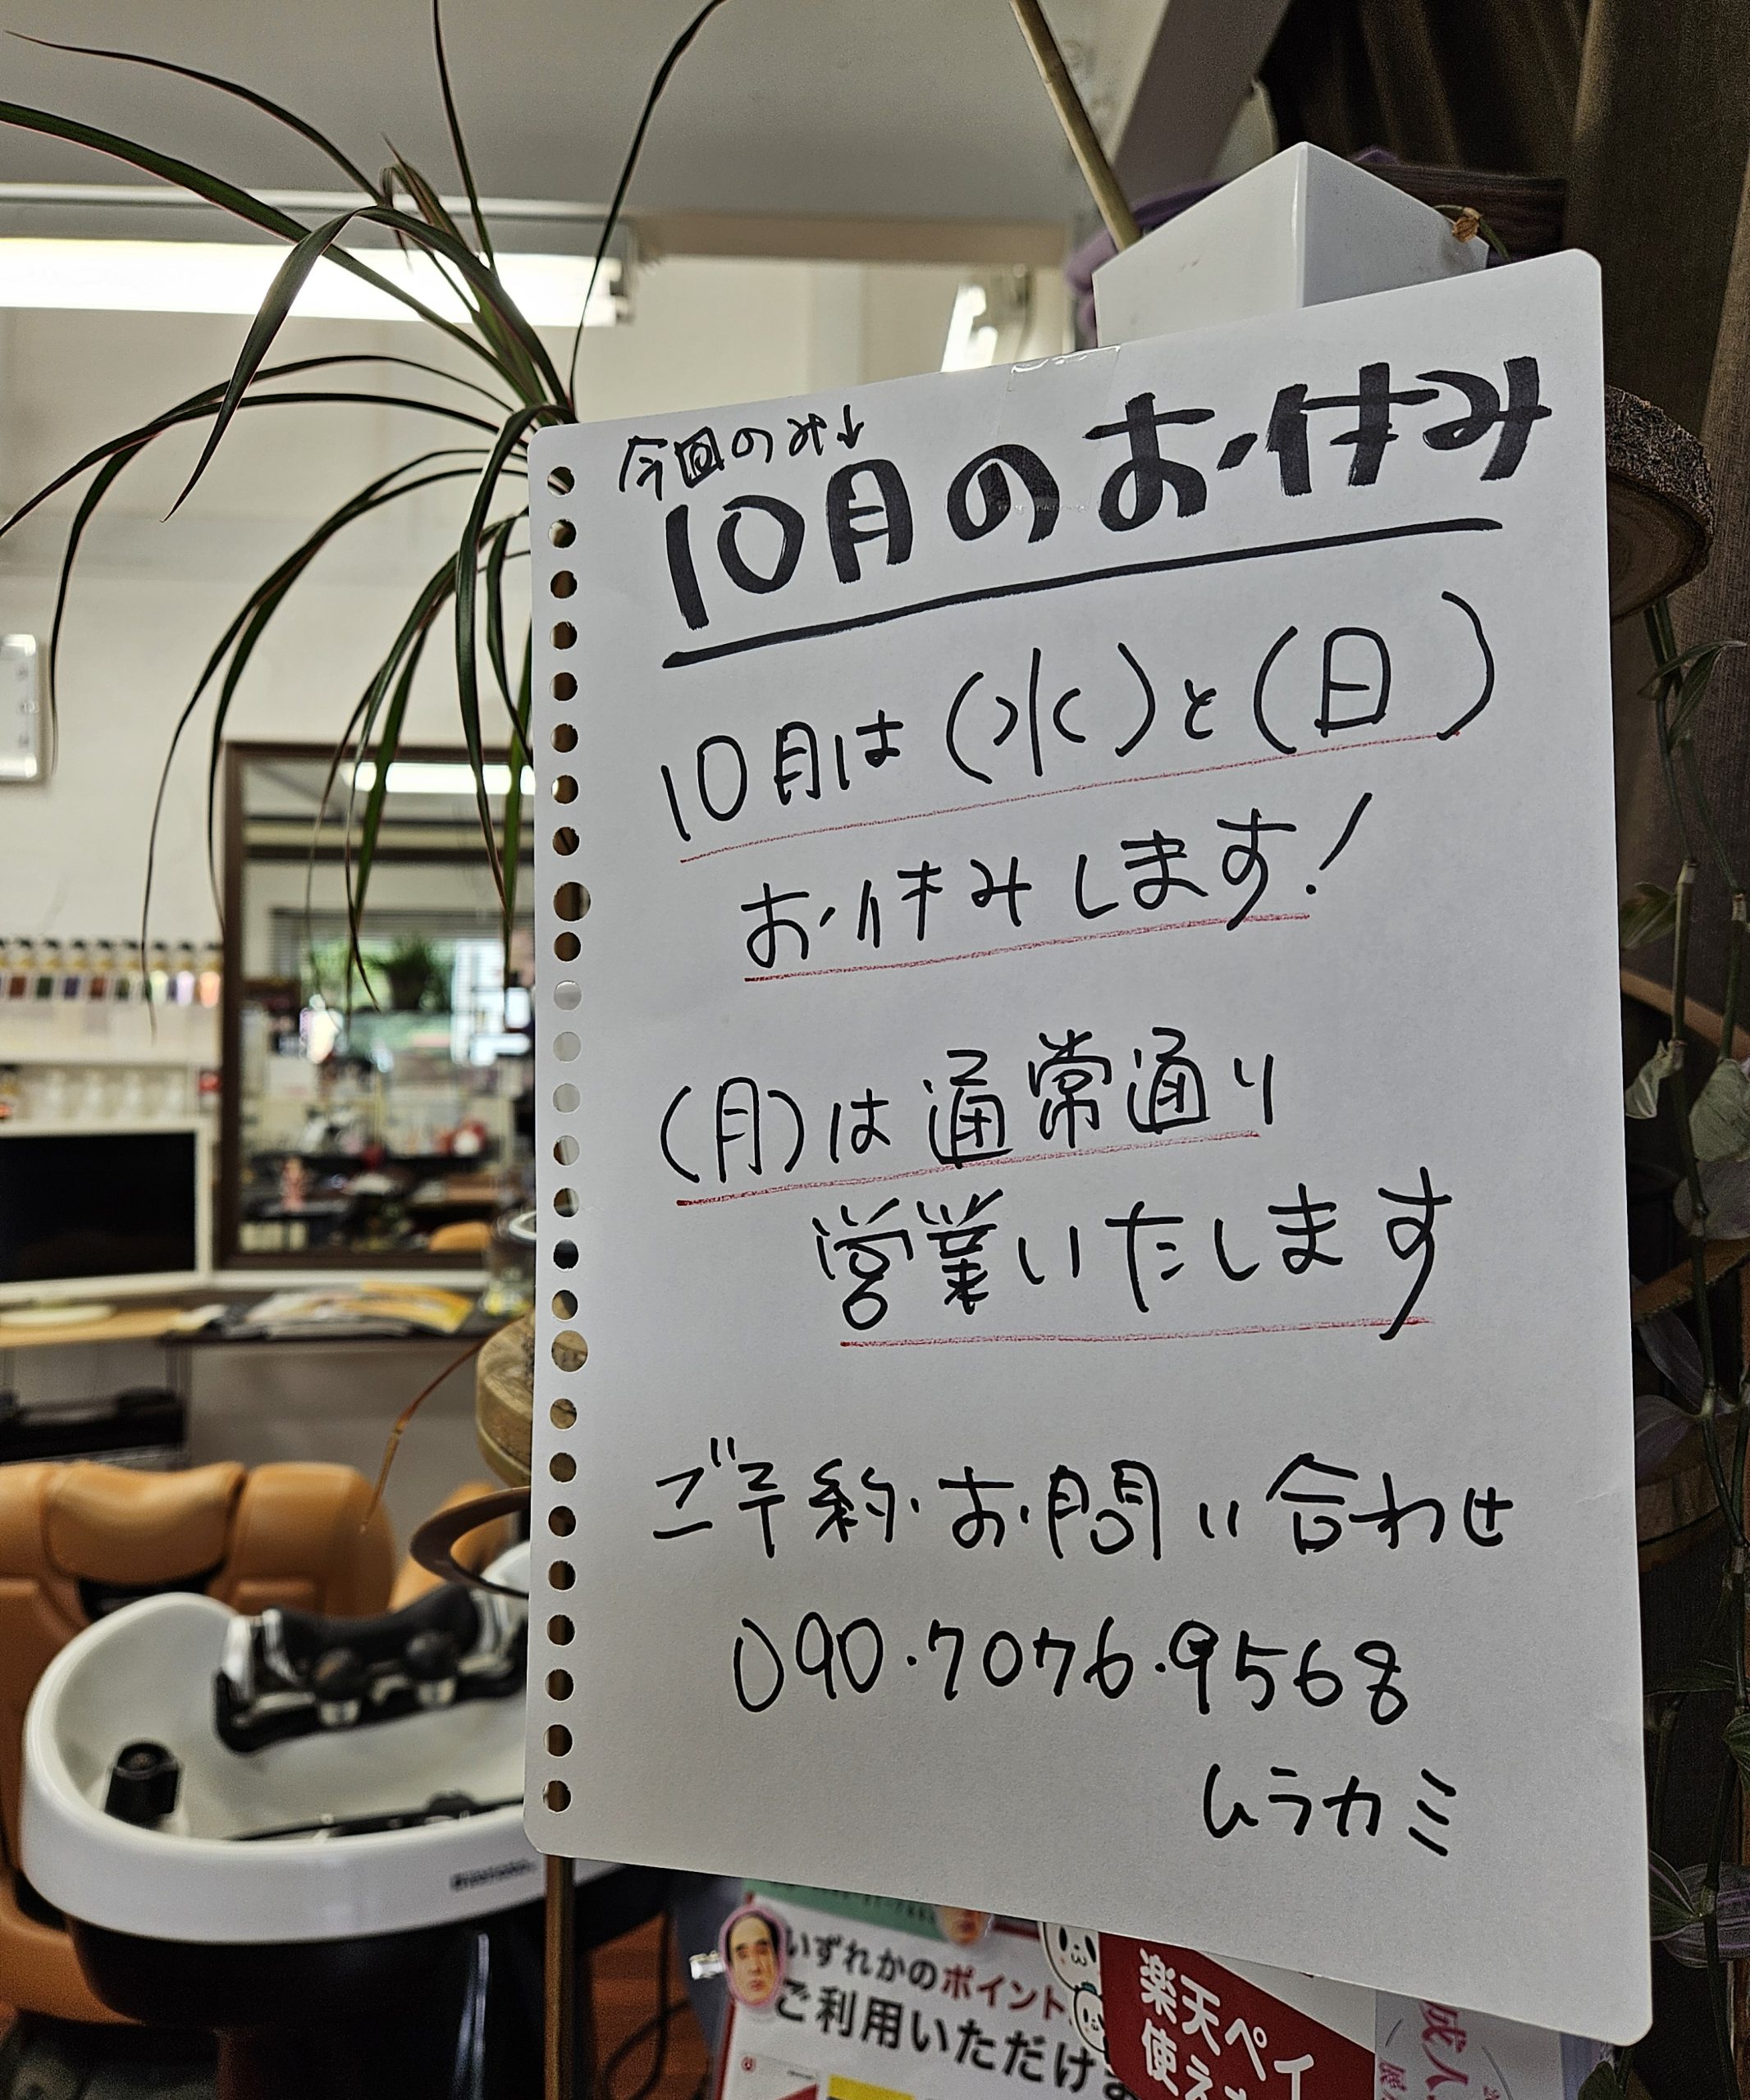 今回のみ↓
10月のお休み
10月は(水)と(日)
お休みします!
(月)は通常通り
営業いたします
ご予約・お問い合わせ
090・7076・9568
ムラカミ
いずれかのポイント
ご利用いただけま
楽天ペイ
使え
成人